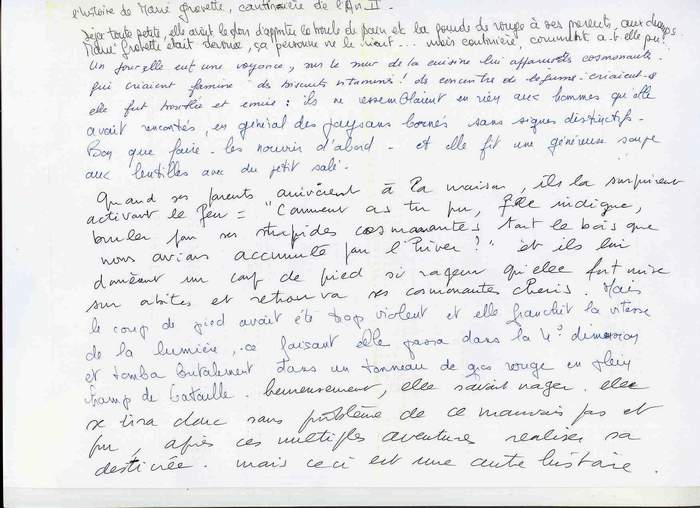 l'histoire de Marie Grosette, cantinière de l'An II
Déjà toute petite, elle avait le don d'apporter la boule de pain et la gourde de rouge à ses parents, aux champs
Marie Grosette était dévouée, ça personne ne le niait... mais cantinière, comment a-t-elle pu?
Un jour elle eut une voyance, sur le mur de la cuisine lui apparut des cosmonautes
qui criaient famine: des biscuits vitaminés! des concentrés de légumes criaient-
elle fut troublée et émue: ils ne ressemblaient en rien aux hommes qu'elle
avait rencontrés, en général des paysans bornés sans signes distinctifs.
Bon que faire. les nourrir d'abord - et elle fit une généreuse soupe
aux lentilles avec du petit salé.
Quand ses parents arrivèrent à la maison, ils la surprirent
activant le feu = "Comment as tu pu, fille indigne,
bruler pour ses stupides cosmonautes tout le bois que
nous avions accumulé pour l'hiver?" et ils lui
donnèrent un coup de pied si rageur qu'elle fut mise
sur orbites et retrouva ses cosmonautes chéris. Mais
le coup de pied avait été trop violent et elle franchit la vitesse
de la lumière, ce faisant elle passa dans la 4° dimension
et tomba brutalement dans un tonneau de gros rouge en plein
champ de bataille. heureusement, elle savait nager. elle
se tira donc sans problème de ce mauvais pas et
pu, après ces multiples aventures realiser sa
destinée. mais ceci est une autre histoire.